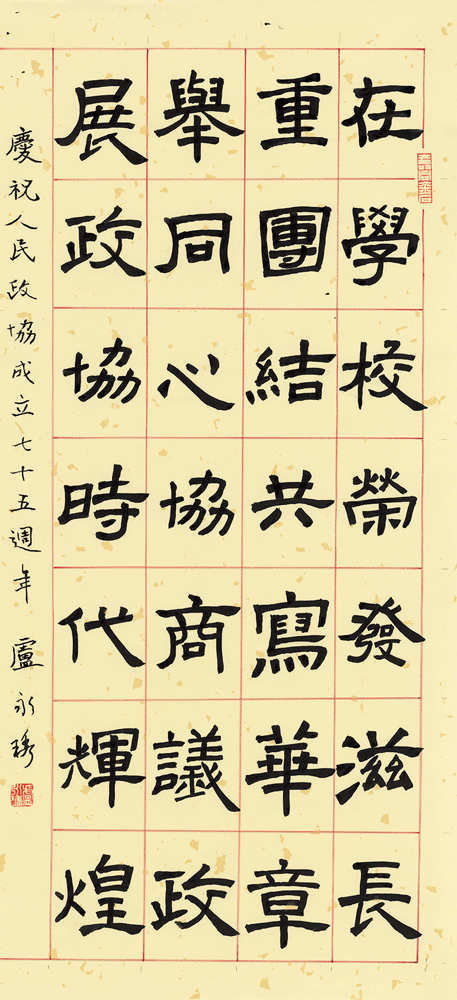 在學校榮發滋長
重團結共寫華章
舉同心協商議政
展政協時代輝煌
慶祝人民政協成立七十五週年 盧永琇